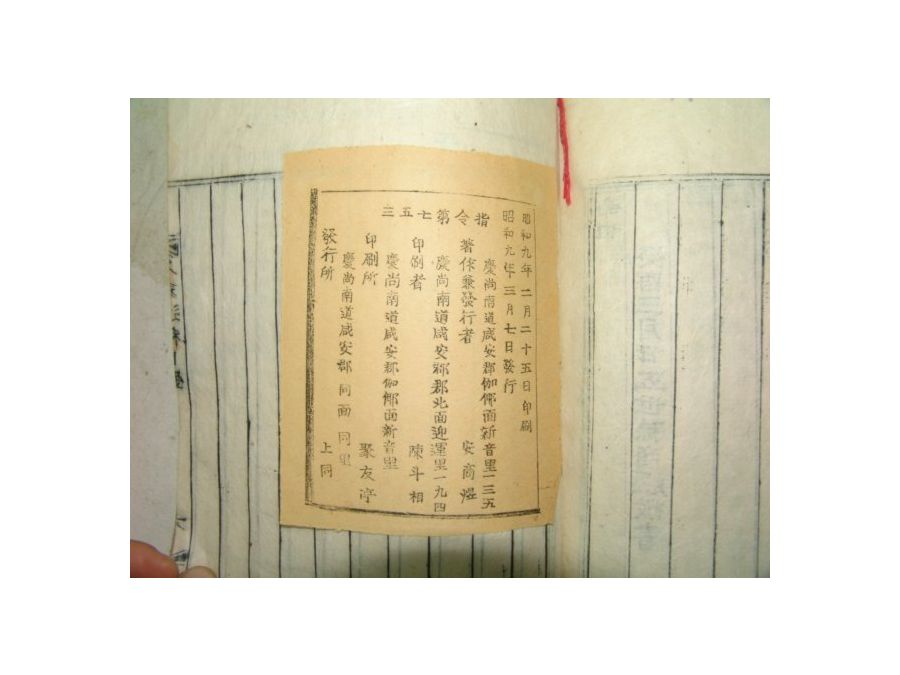 昭和九年 二月二十五日 印刷
昭和九年 三月七日 發行
指令第七五三
慶尚南道咸安郡伽倻面新音里一三五
著作兼發行者 安商煜
慶尚南道咸安郡郡北面迎運里一九四
印刷者 陳斗相
慶尚南道咸安郡伽倻面新音里
印刷所 聚友亭
慶尚南道咸安郡 同面 同里
發行所 上同